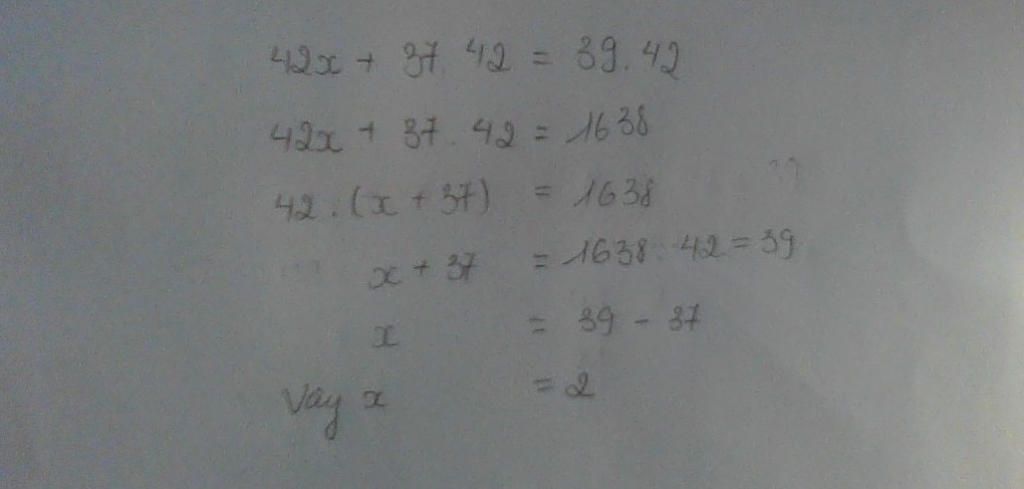 42x + 37. 42 = 39. 42
42x + 37. 42 = 1638
42. (x + 37) = 1638
x + 37 = 1638: 42 = 39
x = 39 - 37
Vậy x = 2